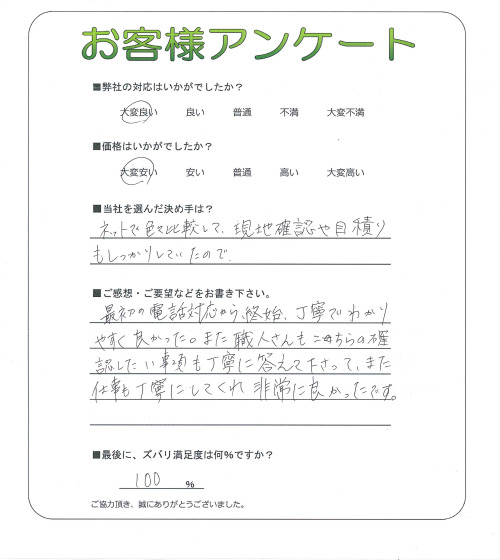 お客様アンケート
■弊社の対応はいかがでしたか？
大変良い 良い 普通 不満 大変不満
■価格はいかがでしたか？
大変安い 安い 普通 高い 大変高い
■当社を選んだ決め手は？
ネットで色々比較して、現地確認や目積り
もしっかりしていたので、
■ご感想・ご要望などをお書き下さい。
最初の電話対応から、終始、丁寧でわかり
やすく良かった。また職人さんもこちらの確
認したい事項も丁寧に答えて下さって、また
仕事も丁寧にしてくれ非常に良かったです。
■最後に、ズバリ満足度は何％ですか？
100 ％
ご協力頂き、誠にありがとうございました。